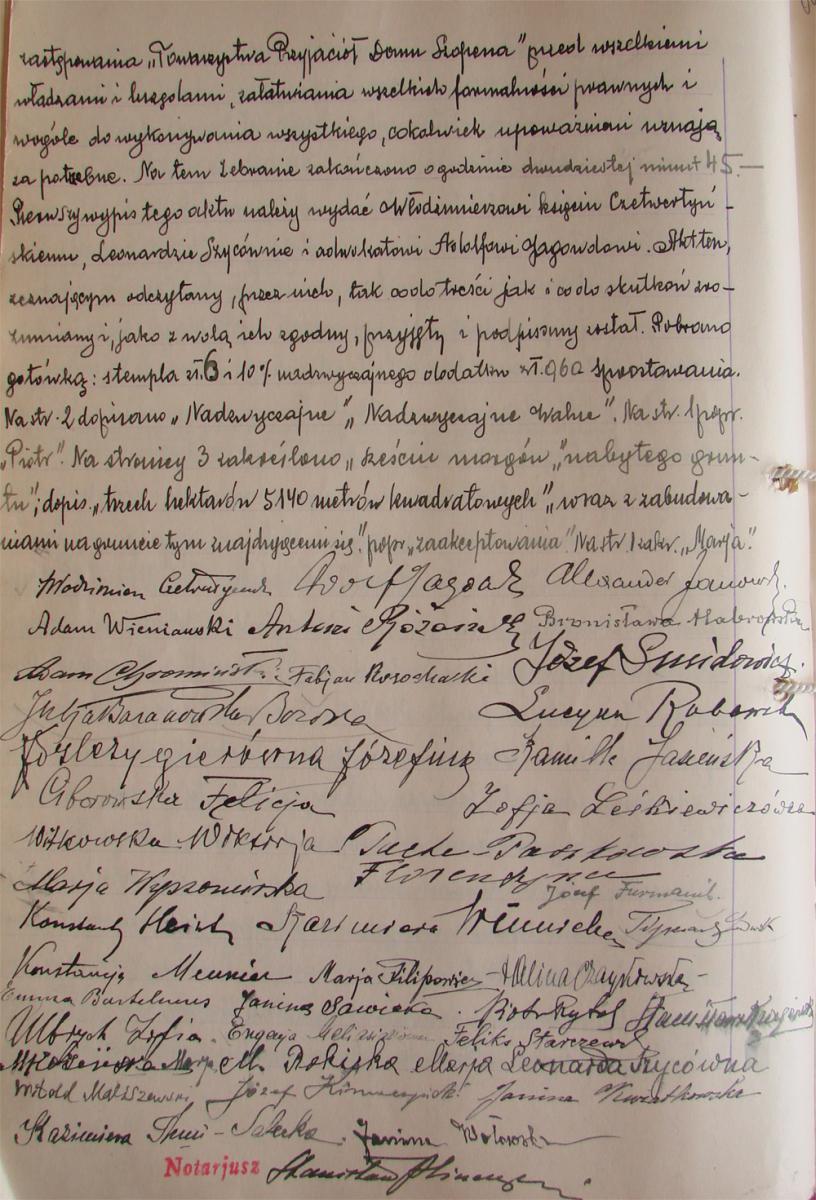 zastępowania „Towarzystwa Przyjaciół Domu Szopena” przed wszelkiemi
władzami i urzędami, załatwiania wszelkich formalności prawnych i
wogóle do wykonywania wszystkiego, cokolwiek upoważnieni uznają
za potrzebne. Na tem Zebranie zakończono o godzinie dwudziestej minut 45.—
Pierwszy wypis tego aktu należy wydać Włodzimierzowi księciu Czetwertyń-
skiemu, Leonardzie Szycównie i adwokatowi Adolfowi Jagowdowi. Akt ten,
zeznającym odczytany, przez nich, tak co do treści jak i co do skutków zro-
zumiany i, jako z wolą ich zgodny, przyjęty i podpisany został. Pobrano
gotówką: stempla zł. 6 i 10% nadzwyczajnego dodatku zł. 0,60 Sprostowania.
Na str. 2 dopisano „Nadzwyczajne”, „Nadzwyczajne Walne”. Na str. 1 popr.
„Piotr”. Na stronicy 3 zakreślono „sześciu morgów”, „nabytego grun-
tu”; dopis. „trzech hektarów 5140 metrów kwadratowych”, „wraz z zabudowa-
niami na gruncie tym znajdującemi się”. popr. „zaakceptowania”. Na str. 1 zakr. „Marja”.
Włodzimierz Czetwertyński Adolf Alexander Janowski
Adam Wieniawski Antoni Bronisława
Adam Chromiński Fabjan Kosochacki Józef Śmidowicz
Julja Baranowska Borowa Lucyna Robowska
Józefina Kamilla Jasieńska
Ciborowska Felicja Zofja Leśkiewiczówna
Witkowska Wiktorja Paszkowska
Florentyna
Marja Józef Furmanik
Konstanty Kazimiera
Konstancja Meunier Marja Filipowicz Halina Czaykowska
Emma Bartelmus Janina Sawicka Piotr Rytel Stanisława
Ulbrych Zofja Eugenja Feliks Starczewski
Marja M. Rolicka Marja Leonarda Szycówna
Witold Maliszewski Józef Janina Kwiatkowska
Kazimiera Janina
Notarjusz Stanisław